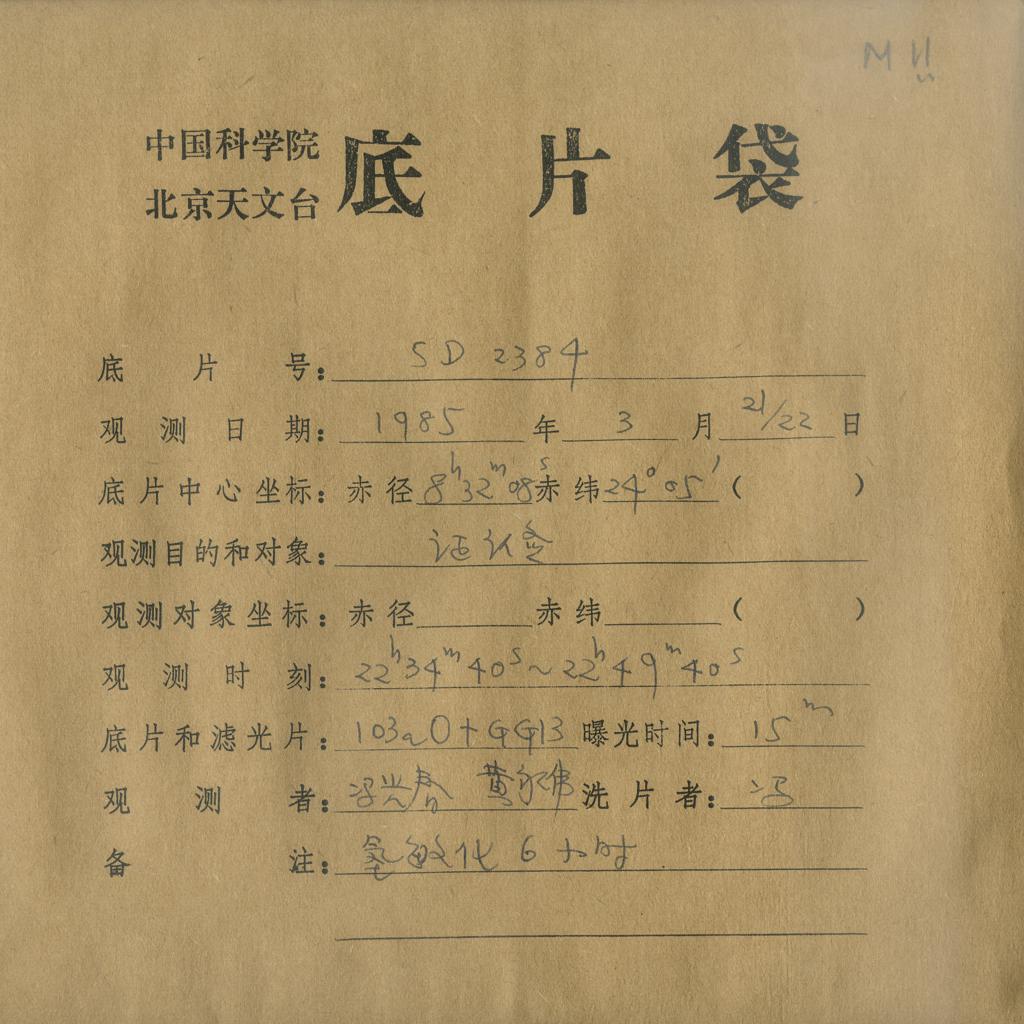 M
中国科学院
北京天文台
底片袋
底片号：SD 2384
观测日期：1985年3月21/22日
底片中心坐标：赤径8h32m08s赤纬24°05′（ ）
观测目的和对象：证认
观测对象坐标：赤径 赤纬 （ ）
观测时刻：22h34m40s～22h49m40s
底片和滤光片：103aO+GG13曝光时间：15m
观测者：冯光春 黄永伟洗片者：冯
备注：氢敏化6小时